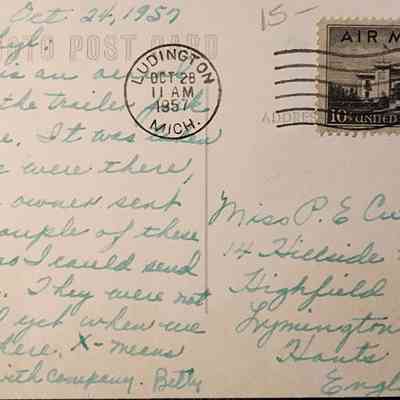 Oct 24, 1957
15-
PHOTO POST CARD
hyl.
is an
the trailer park
e. It was taken
we were there,
owner sent
couple of these
so I could send
. They were not
yet when we
here. X- means
with company. Betty
LUDINGTON
OCT 28
11 AM
1957
MICH.
AIR M
10¢ UNITED
ADDRESS
Miss P. E Cu
14 Hillside
Highfield
Lymington
Hants
Engl